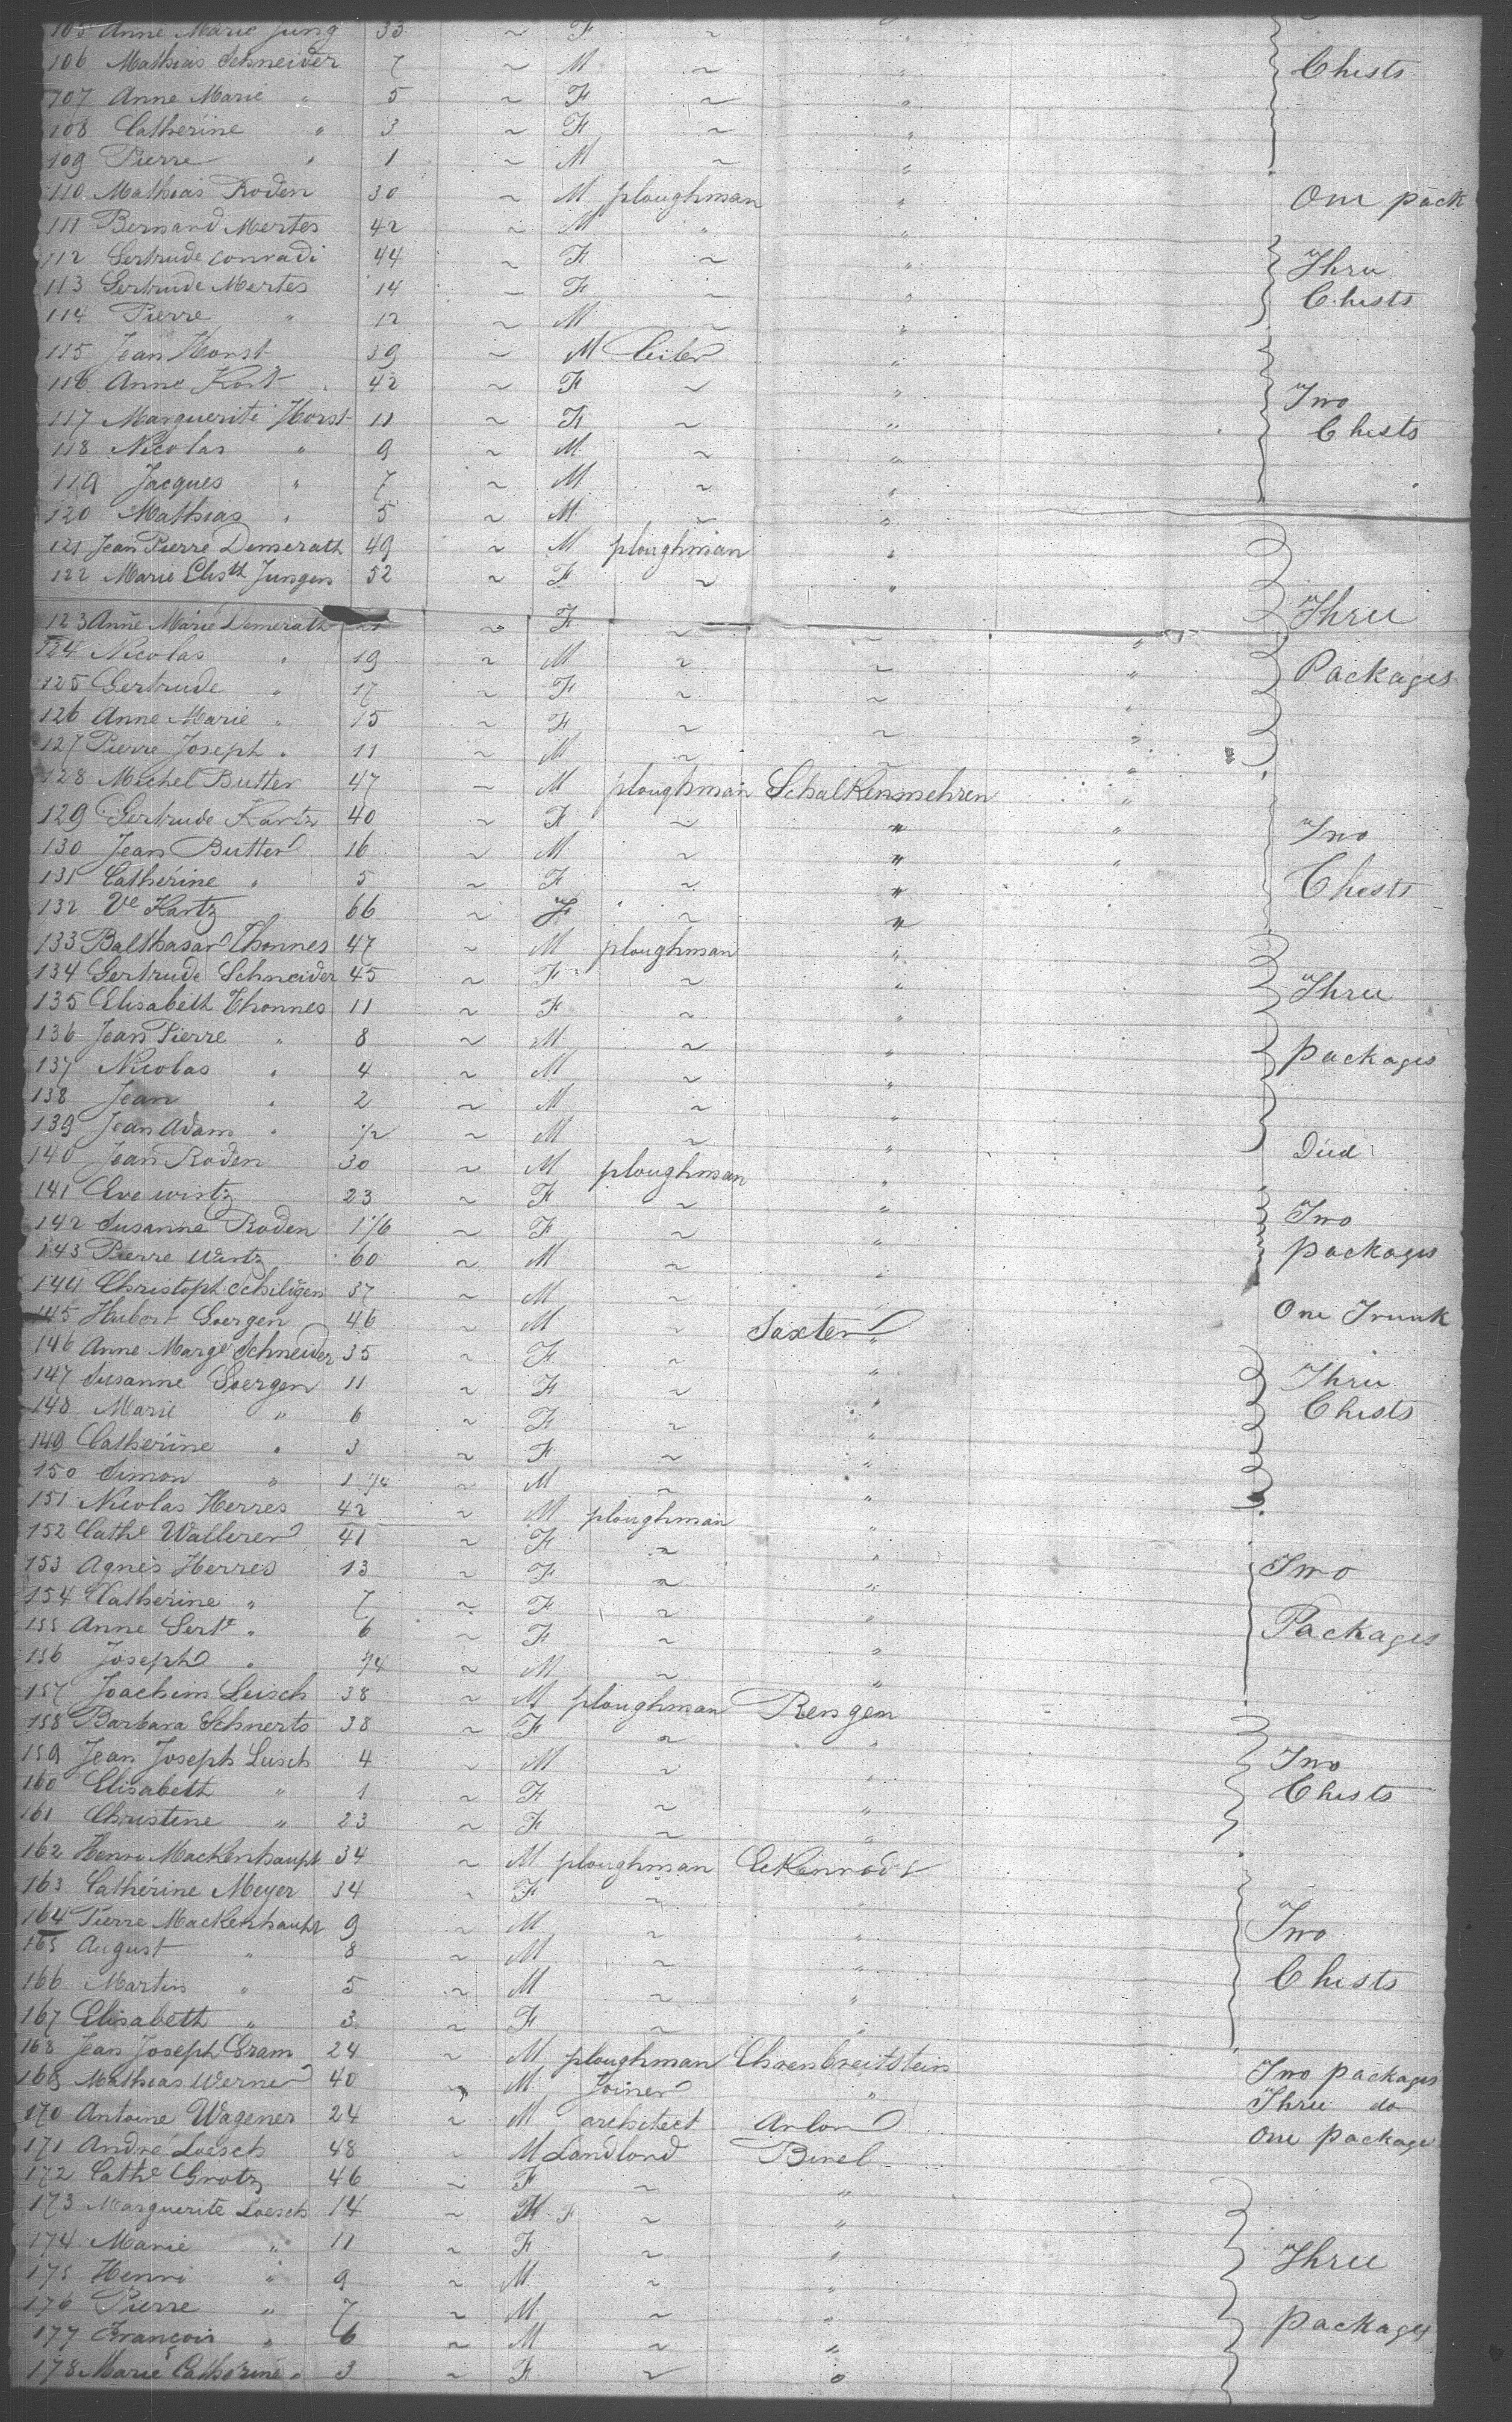 105 Anne Marie Jung 33 ~ F ~ "
106 Mathias Schneider 7 ~ M ~ " Chests
107 Anne Marie " 5 ~ F ~ "
108 Catherine " 3 ~ F ~ "
109 Pierre " 1 ~ M ~ "
110 Mathias Roden 30 ~ M ploughman " One pack
111 Bernard Mertes 42 ~ M " "
112 Gertrude Conradi 44 ~ F ~ " Three
113 Gertrude Mertes 14 ~ F ~ " Chests
114 Pierre " 12 ~ M ~ "
115 Jean Horst 39 ~ M "
116 Anne Kost 42 ~ F ~ " Two
117 Marguerite Horst 11 ~ F ~ " Chests
118 Nicolas " 9 ~ M ~ "
119 Jacques " 7 ~ M ~ "
120 Mathias " 5 ~ M ~ "
121 Jean Pierre Demerath 49 ~ M ploughman "
122 Marie Elisth Jungen 52 ~ F ~ "
123 Anne Marie Demerath ~ F ~ ~ " Three
124 Nicolas " 19 ~ M ~ ~ " Packages
125 Gertrude " 17 ~ F ~ ~ "
126 Anne Marie " 15 ~ F ~ ~ "
127 Pierre Joseph " 11 ~ M ~ ~ "
128 Michel Butter 47 ~ M ploughman Schalkenmehren "
129 Gertrude Kartz 40 ~ F ~ " " Two
130 Jean Butter 16 ~ M ~ " "
131 Catherine " 5 ~ F ~ " Chests
132 Ve Kartz 66 ~ F ~ "
133 Balthasar Thonnes 47 ~ M ploughman "
134 Gertrude Schneider 45 ~ F ~ " Three
135 Elisabeth Thonnes 11 ~ F ~ "
136 Jean Pierre " 8 ~ M ~ " packages
137 Nicolas " 4 ~ M ~ "
138 Jean " 2 ~ M ~ "
139 Jean Adam " 1/2 ~ M ~ " Died
140 Jean Roden 30 ~ M ploughman "
141 Eve wirtz 23 ~ F ~ " Two
142 Susanne Roden 1 1/6 ~ F ~ " packages
143 Pierre Wirtz 60 ~ M ~ "
144 Christoph Schiligen 37 ~ M ~ " One Trunk
145 Hubert Goergen 46 ~ M ~ Saxler
146 Anne Marge Schneider 35 ~ F ~ " Three
147 Susanne Goergen 11 ~ F ~ " Chests
148 Marie " 6 ~ F ~ "
149 Catherine " 3 ~ F ~ "
150 Simon " 1 1/4 ~ M ~ "
151 Nicolas Herres 42 ~ M ploughman "
152 Cathe Walleren 41 ~ F ~ "
153 Agnes Herres 13 ~ F ~ " Two
154 Catherine " 7 ~ F ~ "
155 Anne Gerte " 6 ~ F ~ " Packages
156 Joseph " 3/4 ~ M ~ "
157 Joachim Leisch 38 ~ M ploughman Rengen
158 Barbara Schnerts 38 ~ F ~ "
159 Jean Joseph Leisch 4 ~ M ~ " Two
160 Elisabeth " 1 ~ F ~ " Chests
161 Christine " 23 ~ F ~ "
162 Henri Mackenhaupt 34 ~ M ploughman
163 Catherine Meyer 34 ~ F ~ "
164 Pierre Mackenhaupt 9 ~ M ~ " Two
165 August " 8 ~ M ~ "
166 Martin " 5 ~ M ~ " Chests
167 Elisabeth " 3 ~ F ~ "
168 Jean Joseph Gram 24 ~ M ploughman Ehrenbreitstein Two packages
169 Mathias Werner 40 ~ M Joiner " Three do
170 Antoine Wagener 24 ~ M architect Arlon One package
171 André Loesch 48 ~ M Landlord Birel
172 Cathe Grotz 46 ~ F ~ "
173 Marguerite Loesch 14 ~ F ~ "
174 Marie " 11 ~ F ~ " Three
175 Henri " 9 ~ M ~ "
176 Pierre " 7 ~ M ~ " packages
177 François " 6 ~ M ~ "
178 Marie Catherine " 3 ~ F ~ "